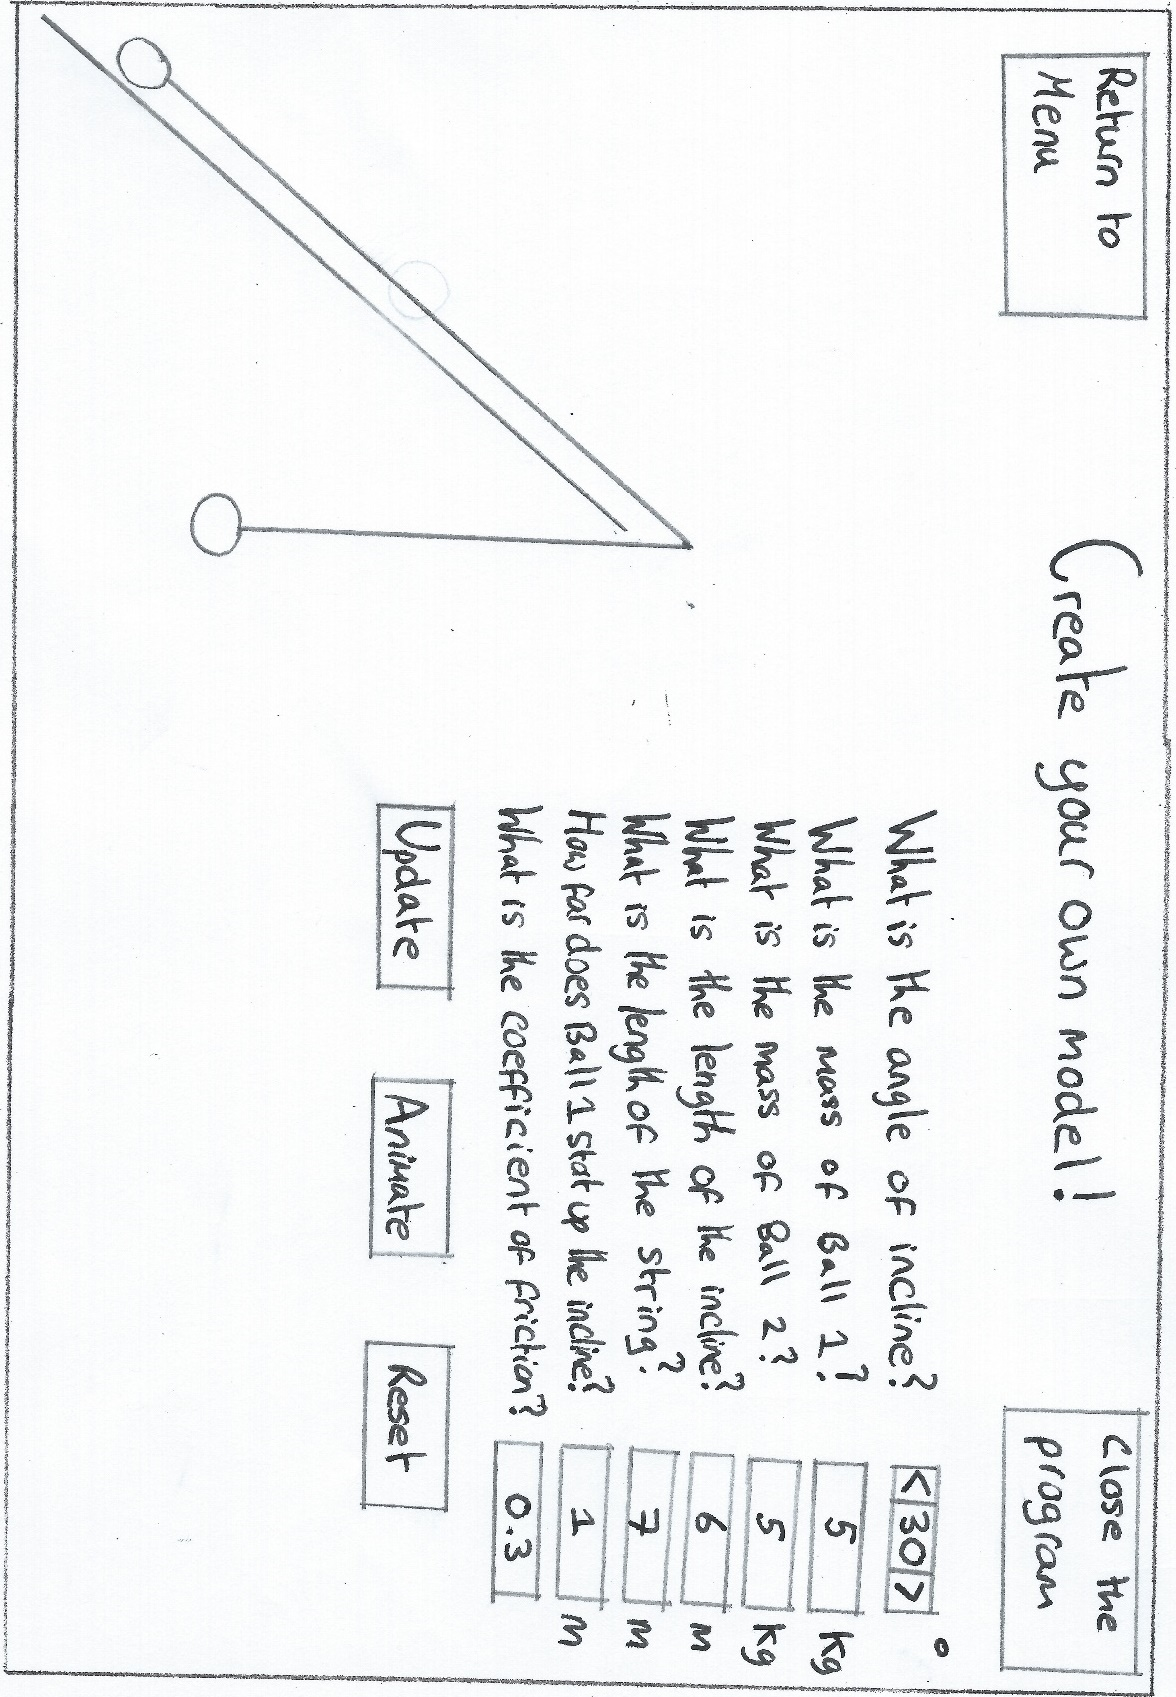 Return to
Menu
Create your own model!
Close the
program
What is the angle of incline? <|30|> °
What is the mass of Ball 1? 5 kg
What is the mass of Ball 2? 5 kg
What is the length of the incline? 6 m
What is the length of the string? 7 m
How far does Ball 1 stat up the incline? 1 m
What is the coefficient of friction? 0.3
Update Animate Reset